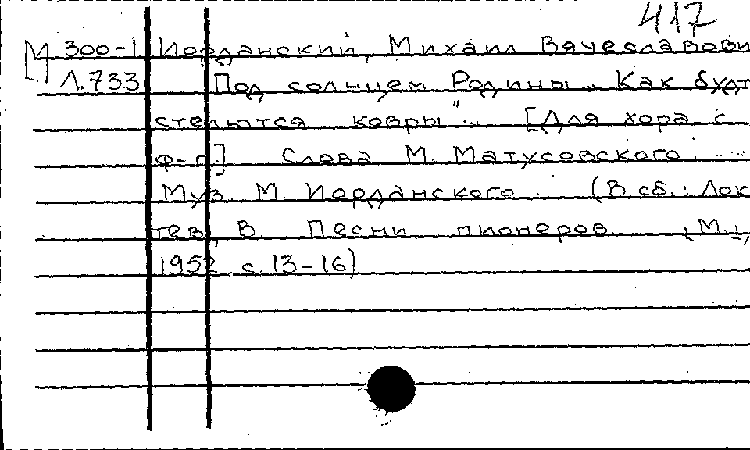 417
М 300-1 Иорданский, Михаил Вячеславови
Л.733 Под солнцем Родины. „Как будт
стелются ковры"... [Для хора с
ф-п.] Слова М. Матусовского ....
Муз. М. Иорданского. (В сб.: Лок
тев, В. Песни пионеров. М.,
1952 с. 13-16)